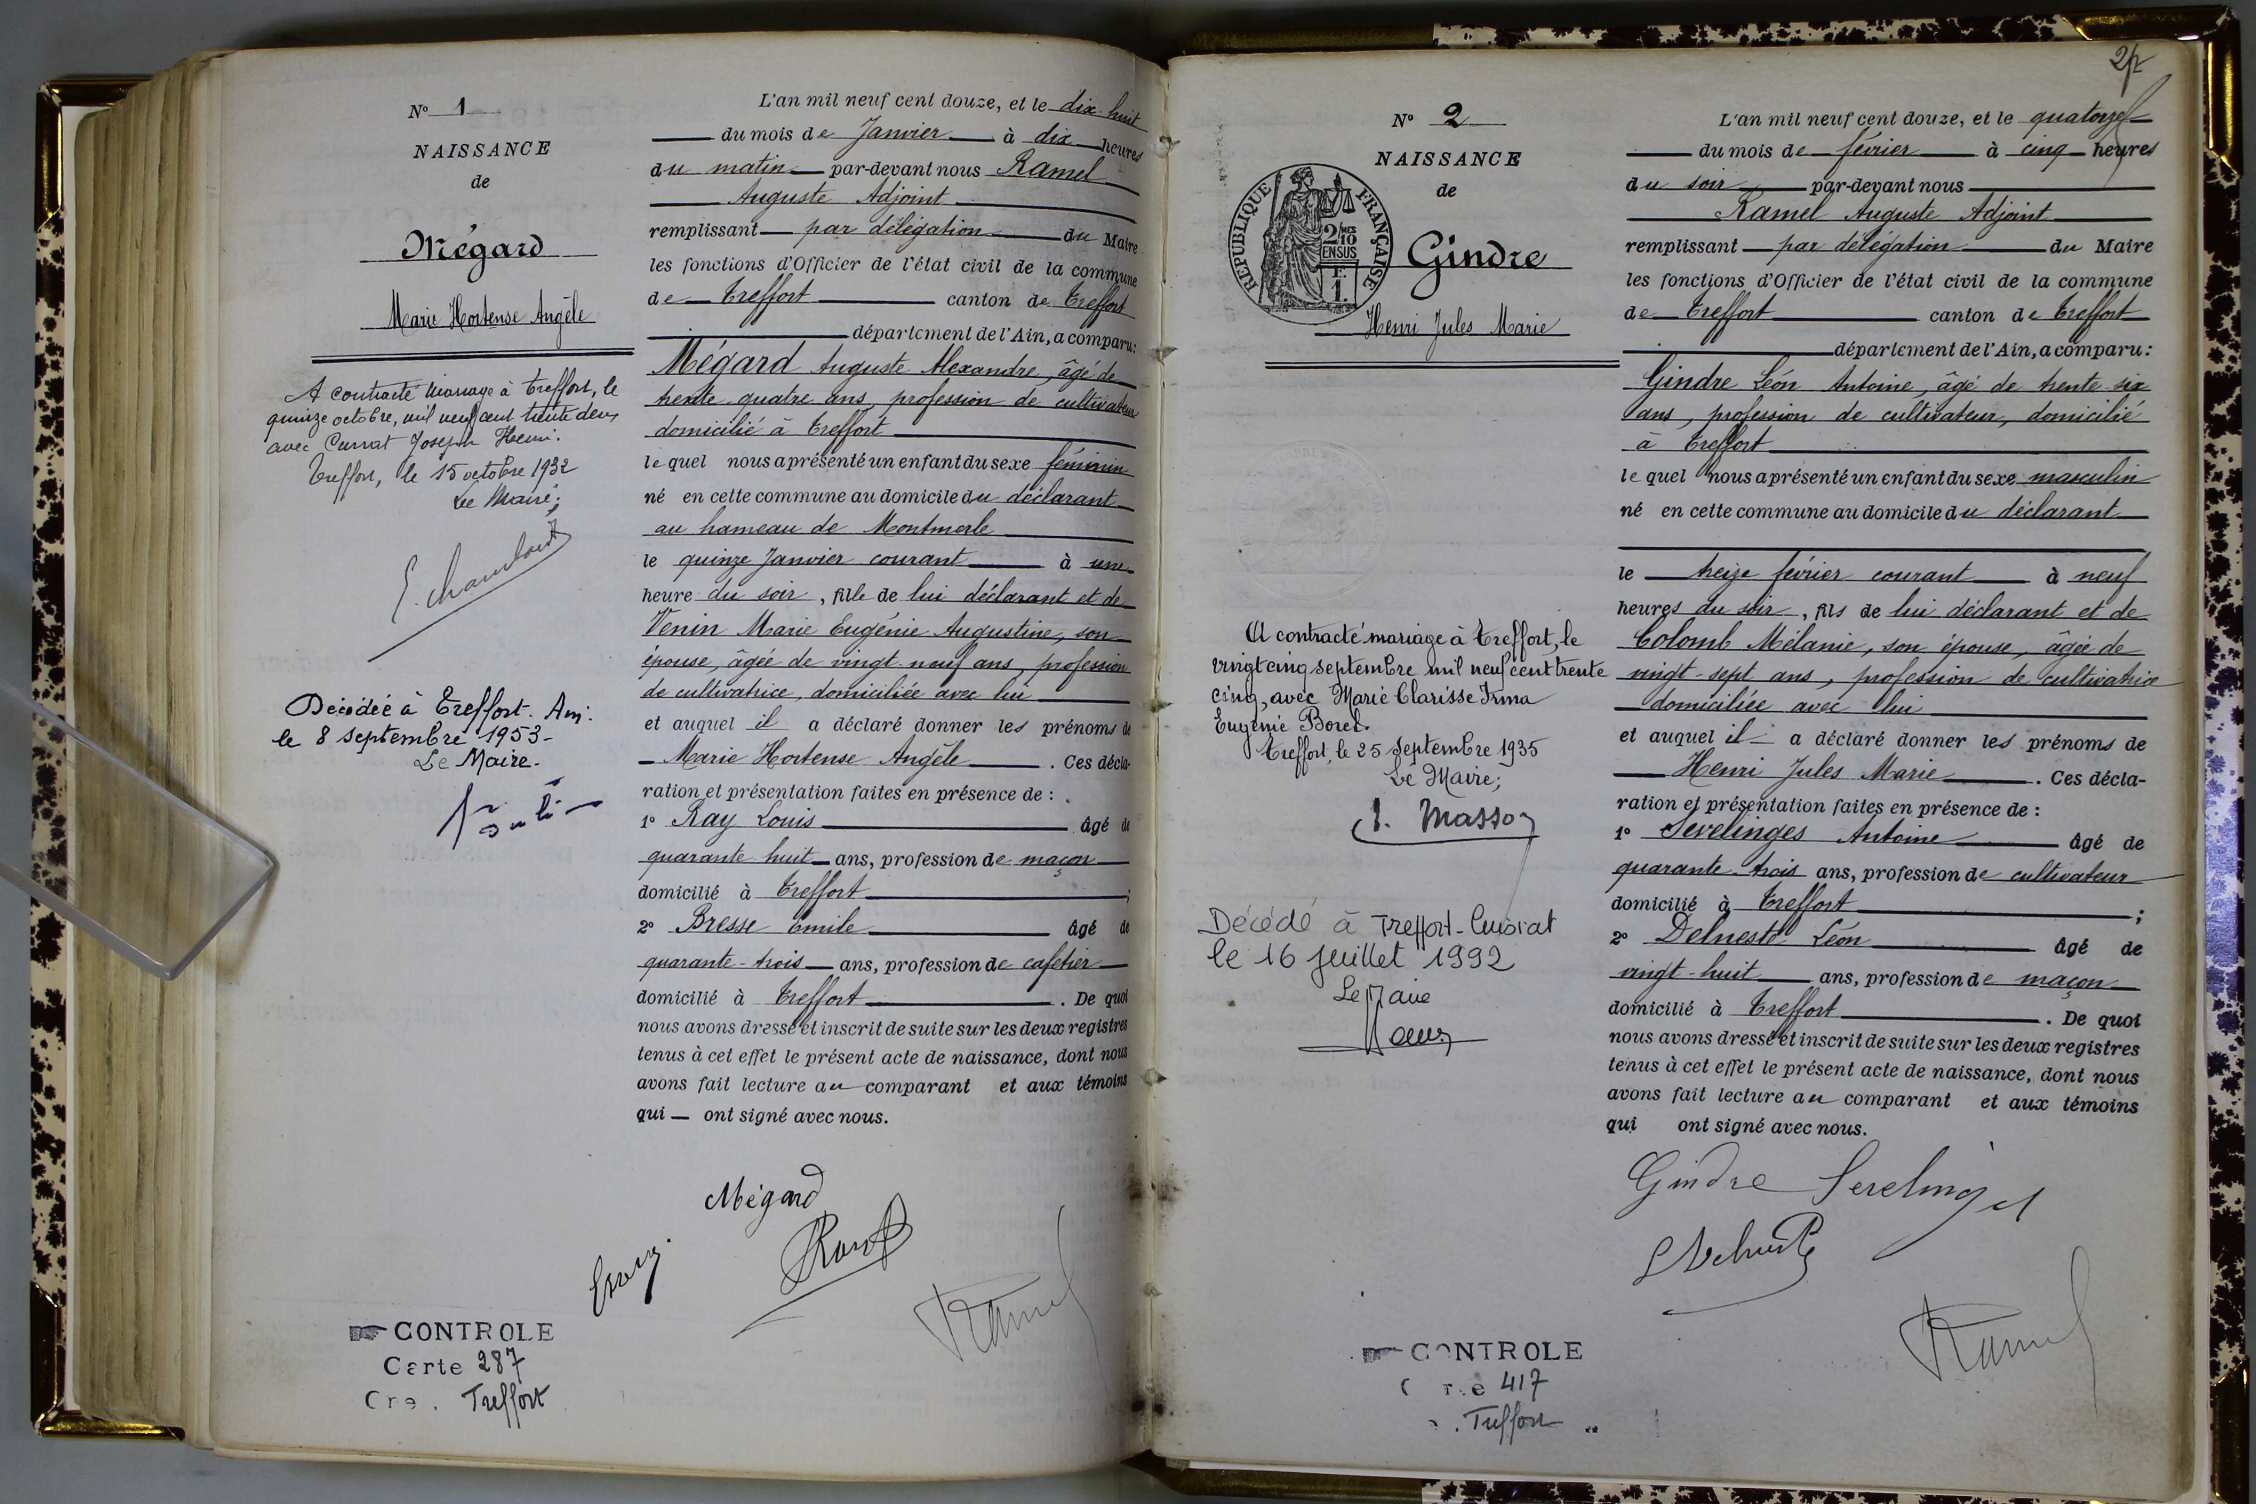 N° 1
NAISSANCE
de
Mégard
Marie Hortense Angèle
A contracté mariage à Treffort, le
quinze octobre, mil neuf cent trente deux
avec Currat Joseph Henri.
Treffort, le 15 octobre 1932
Le Maire;
Décédée à Treffort. Ain.
le 8 septembre 1953-
Le Maire.
CONTROLE
Carte 287
Cne. Treffort
L'an mil neuf cent douze, et le dix-huit
du mois de Janvier à dix heures
du matin par-devant nous Ramel
Auguste Adjoint
remplissant par délégation du Maire
les fonctions d'Officier de l'état civil de la commune
de Treffort canton de Treffort
département de l'Ain, a comparu:
Mégard Auguste Alexandre, âgé de
trente quatre ans, profession de cultivateur
domicilié à Treffort
lequel nous a présenté un enfant du sexe féminin
né en cette commune au domicile du déclarant
au hameau de Montmerle
le quinze Janvier courant à une
heure du soir, fille de lui déclarant et de
Venin Marie Eugénie Augustine, son
épouse, âgée de vingt-neuf ans, profession
de cultivatrice, domiciliée avec lui
et auquel il a déclaré donner les prénoms de
Marie Hortense Angèle. Ces décla-
ration et présentation faites en présence de :
1° Ray Louis âgé de
quarante huit ans, profession de maçon
domicilié à Treffort ;
2° Bresse Emile âgé de
quarante-trois ans, profession de cafetier
domicilié à Treffort. De quoi
nous avons dressé et inscrit de suite sur les deux registres
tenus à cet effet le présent acte de naissance, dont nous
avons fait lecture au comparant et aux témoins
qui ont signé avec nous.
Mégard
Ramel
2
N° 2
NAISSANCE
de
REPUBLIQUE FRANÇAISE
2/10 MES
EN SUS
F.
1.
Gindre
Henri Jules Marie
A contracté mariage à Treffort, le
vingt cinq septembre mil neuf cent trente
cinq, avec Marie Clarisse Irma
Eugénie Borel.
Treffort, le 25 septembre 1935
Le Maire;
Masson
Décédé à Treffort-Cuisiat
le 16 juillet 1992
Le Maire
CONTROLE
417
Treffort
L'an mil neuf cent douze, et le quatorze
du mois de février à cinq heures
du soir par-devant nous
Ramel Auguste Adjoint
remplissant par délégation du Maire
les fonctions d'Officier de l'état civil de la commune
de Treffort canton de Treffort
département de l'Ain, a comparu:
Gindre Léon Antoine, âgé de trente six
ans, profession de cultivateur, domicilié
à Treffort
lequel nous a présenté un enfant du sexe masculin
né en cette commune au domicile du déclarant
le treize février courant à neuf
heures du soir, fils de lui déclarant et de
Colomb Mélanie, son épouse, âgée de
vingt-sept ans, profession de cultivatrice
domiciliée avec lui
et auquel il a déclaré donner les prénoms de
Henri Jules Marie. Ces décla-
ration et présentation faites en présence de :
1° Serelinges Antoine âgé de
quarante-trois ans, profession de cultivateur
domicilié à Treffort ;
2° Delnesto Léon âgé de
vingt-huit ans, profession de maçon
domicilié à Treffort. De quoi
nous avons dressé et inscrit de suite sur les deux registres
tenus à cet effet le présent acte de naissance, dont nous
avons fait lecture au comparant et aux témoins
qui ont signé avec nous.
Gindre Serelinges
Ramel